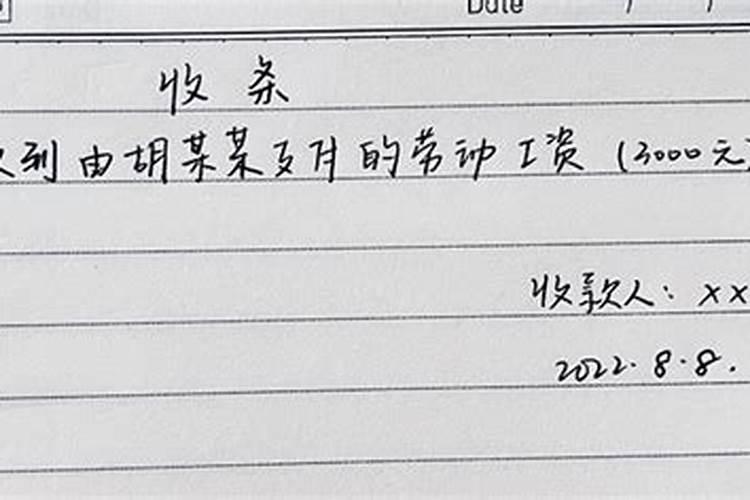 Date / /
收条
到由胡某某支付的劳动工资(3000元)
收款人：××
2022.8.8.